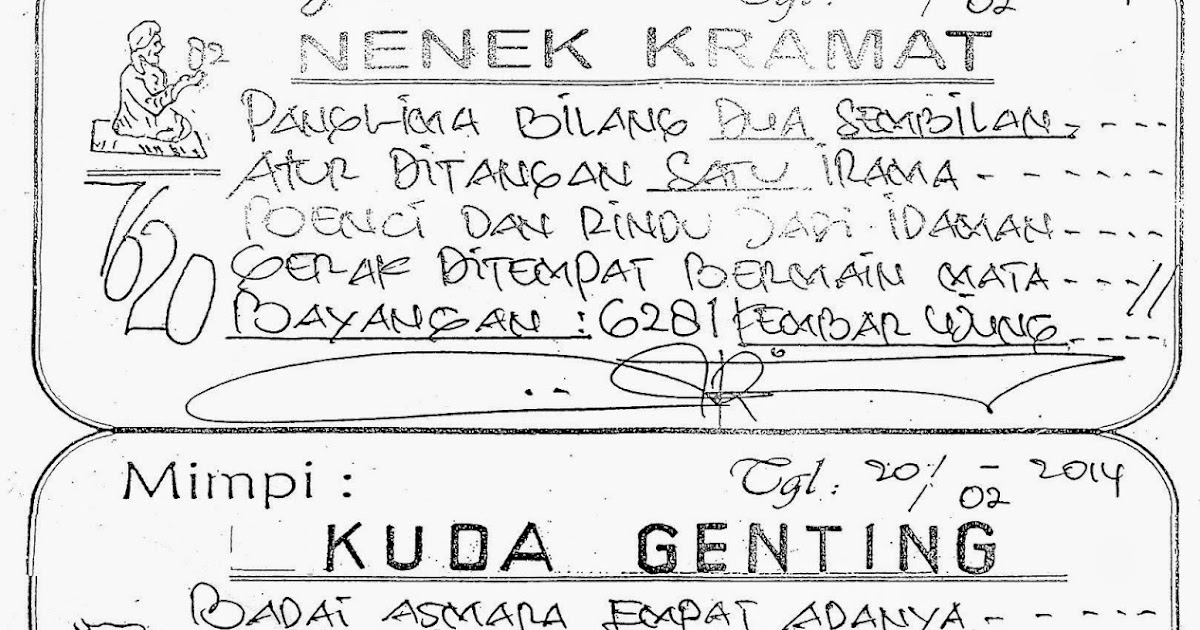 Tgl: / 02
NENEK KRAMAT
02
PANGLIMA BILANG DUA SEMBILAN, ----
ATUR DITANGAN SATU IRAMA - - - - - - -
BENCI DAN RINDU JADI IDAMAN - - - - -
620
GERAK DITEMPAT BERMAIN MATA - - - - //
BAYANGAN : 6281 KEMBAR UJUNG - - - - -
Mimpi :
Tgl: 20/ - 02 2014
KUDA GENTING
BADAI ASMARA EMPAT ADANYA - - - - - -